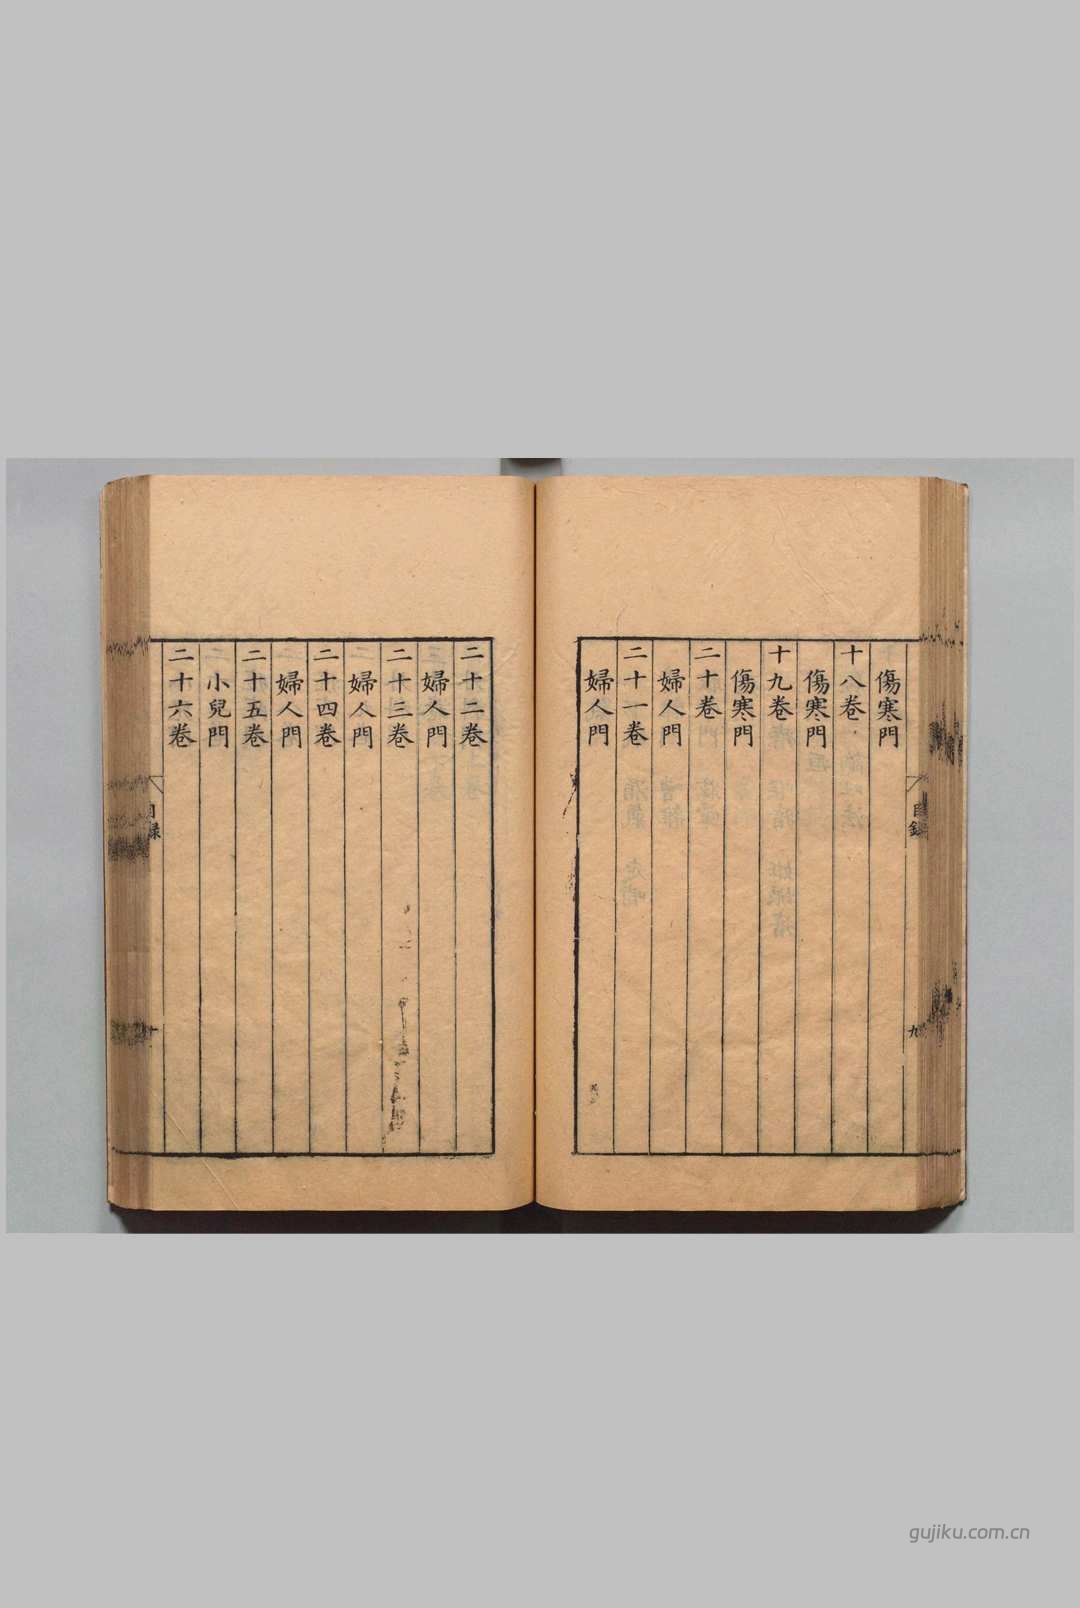 傷寒門
十八卷
傷寒門
十九卷
傷寒門
二十卷
婦人門
二十一卷
婦人門
目錄
九
二十二卷
婦人門
二十三卷
婦人門
二十四卷
婦人門
二十五卷
小兒門
二十六卷
目錄
gujiku.com.cn